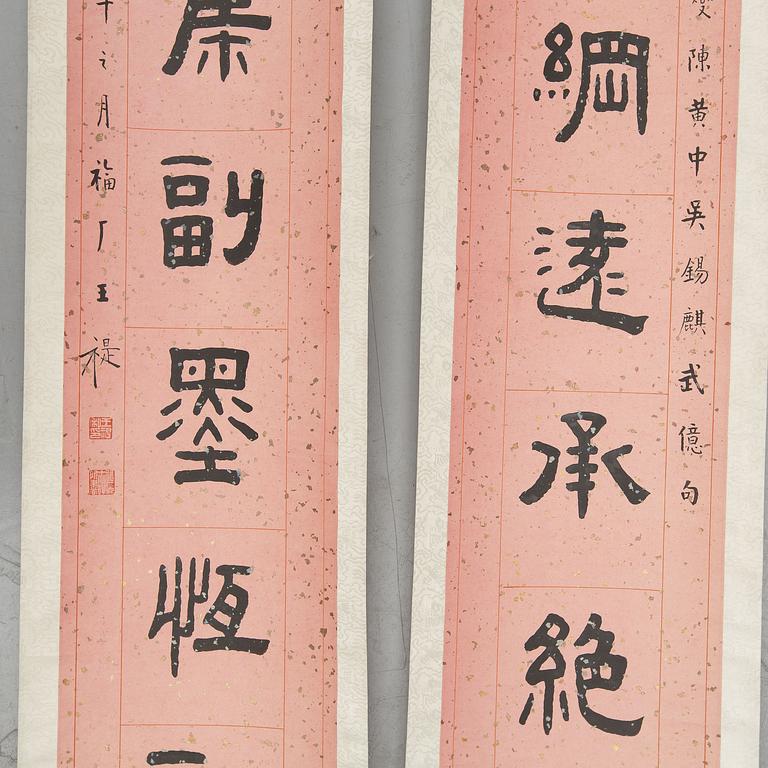 陳黄中吳錫麒武億句
綱遠承絕
副墨恆
之月福厂王禔